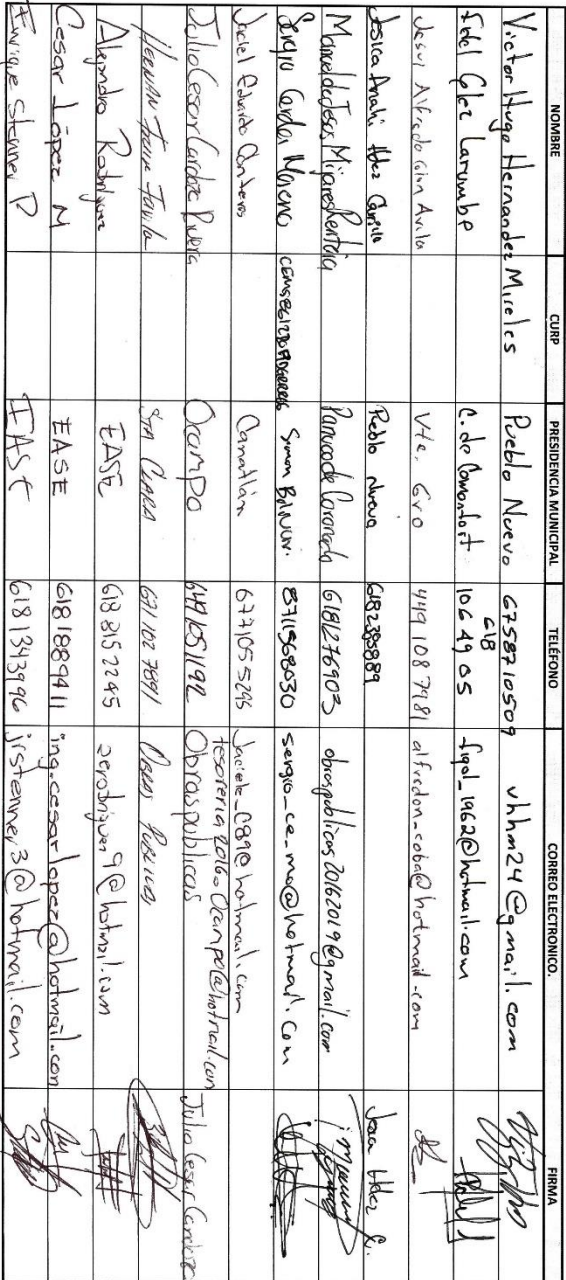 NOMBRE CURP PRESIDENCIA MUNICIPAL TELÉFONO CORREO ELECTRONICO. FIRMA
Victor Hugo Hernandez Mireles Pueblo Nuevo 6758710509 vhhm24@gmail.com
Fidel Glez Larumbe C. de Comonfort 618 1064905 figol_1962@hotmail.com
Jesus Alfredo Avila Vte. Gro 449 108 7981 alfredon_coba@hotmail.com
Jesica Anahi Hdez Carrillo Pueblo Nuevo 6182385889 Jessa Hdez C.
Manuel de Jesus Mijares Renteria Panuco de Coronado 6181276903 obraspublicas20162019@gmail.com
Sergio Cerda Moreno Simon Bolivar. 8711568030 sergio_ce_mo@hotmail.com
Jaciel Eduardo Contreras Canatlán 6771055295 Jaciele_C89@hotmail.com
Julio Cesar Cardoza Ocampo 6491051192 tesoreria2016_Ocampo@hotmail.com Julio Cesar Cardoza
Obras publicas
Sta Clara 671 102 7891 Obras Publicas
Alejandro Rodriguez EASE 618 8152245 zerodriguez9@hotmail.com
Cesar López M EASE 6181889411 ing.cesarlopez@hotmail.com
Enrique Stenner R EASE 6181343996 jrstenner3@hotmail.com